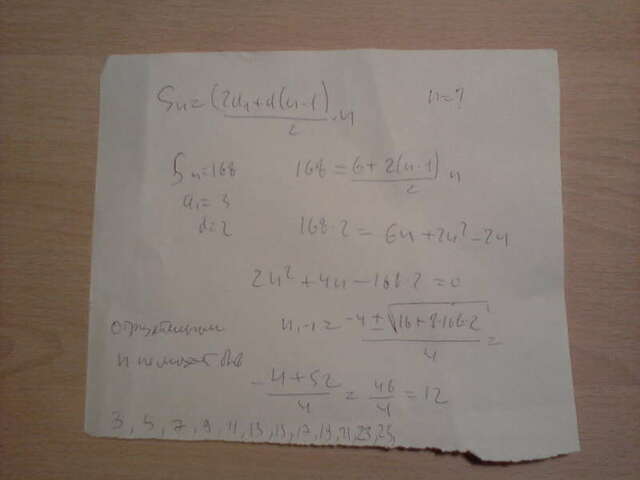 Sn = (2a₁+d(n-1))/2 · n n = ?
Sn = 168 168 = (6+2(n-1))/2 n
a₁ = 3
d = 2 168·2 = 6n+2n²-2n
2n²+4n-168·2 = 0
отрицательным n₁,₂ = (-4±√(16+8·168·2))/4 =
n не может быть
(-4+52)/4 = 48/4 = 12
3, 5, 7, 9, 11, 13, 15, 17, 19, 21, 23, 25,